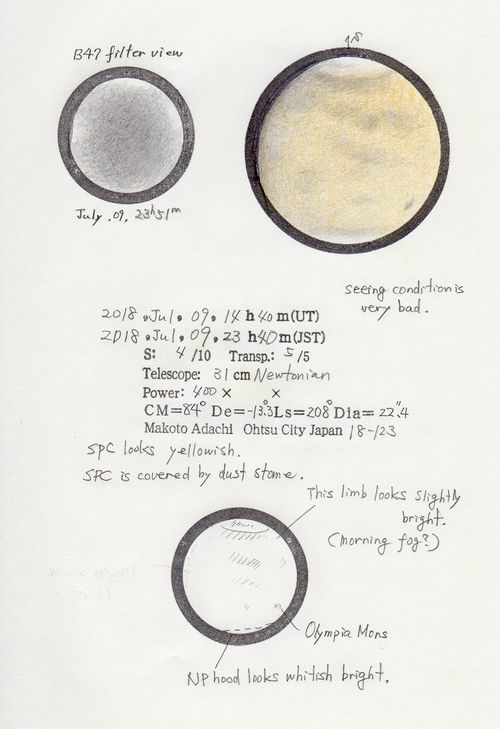 B47 filter view
18
July .09, 23h51m
seeing condition is
very bad.
2018 , Jul, 09, 14 h 40 m(UT)
2018 , Jul, 09, 23 h 40 m(JST)
S: 4 /10 Transp.: 5 /5
Telescope: 31 cm Newtonian
Power: 400 × ×
CM=84° De=-13.3 Ls=208° Dia= 22".4
Makoto Adachi Ohtsu City Japan 18-123
SPC looks yellowish.
SPC is covered by dust stome.
This limb looks slightly
bright.
(Morning fog?)
Olympia Mons
NP hood looks whitish bright.